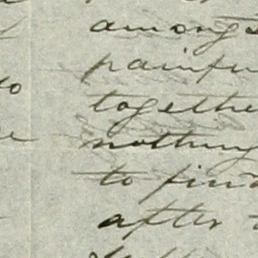 amongs
painfu
to
togethe
nothing
to find
after t